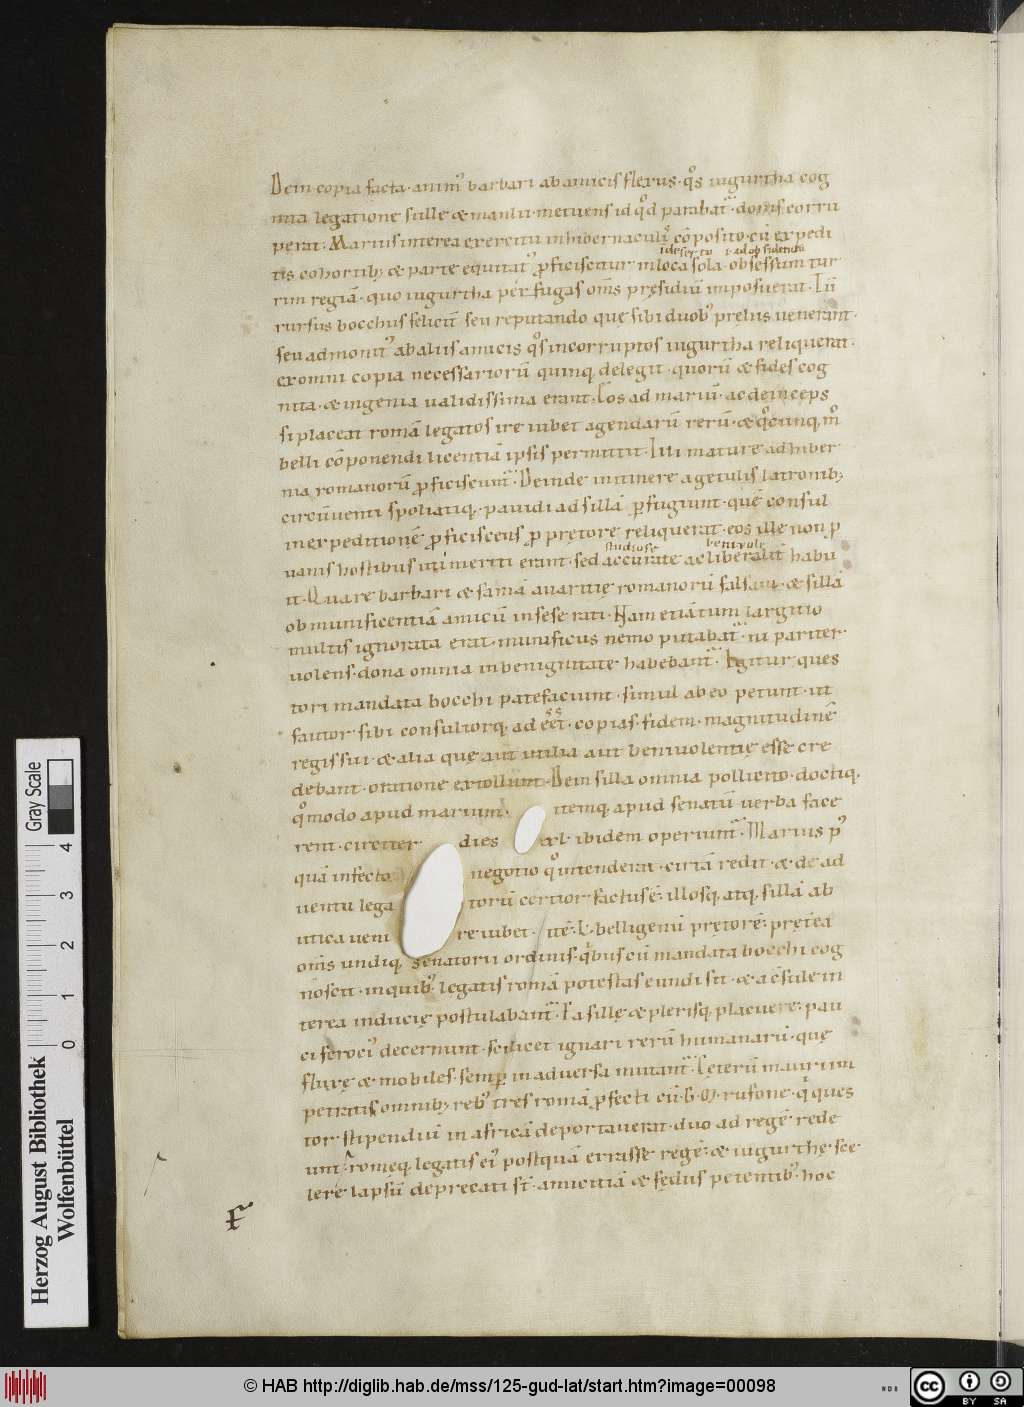 Dein copia facta · anim᷒ barbari ab amicis flexus · qͦs iugurtha cog
nita legatione sulle & manlii · metuens id qͦd parabat᷑ · donis corru
perat · Marius interea exercitu in hibernaculis cōposito · cū expedi
tis cohortib; & parte equitat᷒ p̱ficiscitur in loca sola · obsessum tur
rim regiā · quo iugurtha perfugas om̄s pręsidiū imposuerat · Tū
rursus bocchus feliciť seu reputando quę sibi duob᷒ pręliis venerant ·
seu admonit᷒ ab aliis amicis qͦs incorruptos iugurtha reliquerat ·
ex omni copia necessariorū quinq; delegit · quorū & fides cog
nita · & ingenia validissima erant · Eos ad mariū · ac deinceps
si placeat romā legatos ire iubet agendarū rerū · & qͦcunq; mͦ
belli cōponendi licentiā ipsis permittit · Illi mature ad hiber
na romanorū p̱ficiscunt᷑ · Deinde in itinere a getulis latronib;
circūventi spoliatiq; · pavidi ad sillā p̱fugiunt · quē consul
in expeditionē p̱ficiscens p̱ pretore reliquerat · eos ille non p̱
vanis hostibus uti meriti erant · sed accurate ac liberalit̄ habu
it · Quare barbari & famā avaritię romanorū falsam · & sillā
ob munificentiā amicū in sese rati · Nam etiātum largitio
multis ignorata erat · munificus nemo putabat᷑ · ni pariter
volens · dona omnia in benignitate habebant᷑ · Igitur ques
tori mandata bocchi patefaciunt · simul ab eo petunt · ut
fautor sibi consultorq; adeēt · copias · fidem · magnitudinē
regis sui · & alia quę aut utilia aut benivolentię esse cre
debant · oratione extollunt · Dein silla omnia pollicito · doctiq;
qͦmodo apud marium · itemq; apud senatū verba face
rent · circiter dies xl · ibidem operiunt᷑ · Marius p᷒
quā infecto negotio qͦ intenderat · cirtā redit · & de ad
ventu legatorū certior factus ē · illosq; atq; sillā ab
utica venire iubet · itē · L · belligenū pretorē · pretea
om̄s undiq; senatorii ordinis · qͥbus cū mandata bocchi cog
noscit · in quib᷒ legatis romā potestas eundi fit · & a cōsule in
terea inducię postulabant᷑ · Ea sillę & plerisq; placuere · pau
ci feroci᷒ decernunt · scilicet ignari rerū humanarū · quę
fluxę & mobiles · semp̱ in adversa mutant᷑ · Ceterū mauri im
petratis omnib; reb᷒ tres romā p̱fecti cū · G · O̅ · rufone · qͥ ques
tor stipendiū in africā deportaverat · duo ad regē rede
unt · romeq; legatis ei᷒ postquā errasse regē · & iugurthę sce
lere lapsū deprecati st̄ · amicitiā & fędus petentib᷒ · hoc
Herzog August Bibliothek
Wolfenbüttel
0 1 2 3 4
Gray Scale
© HAB http://diglib.hab.de/mss/125-gud-lat/start.htm?image=00098
cc BY SA